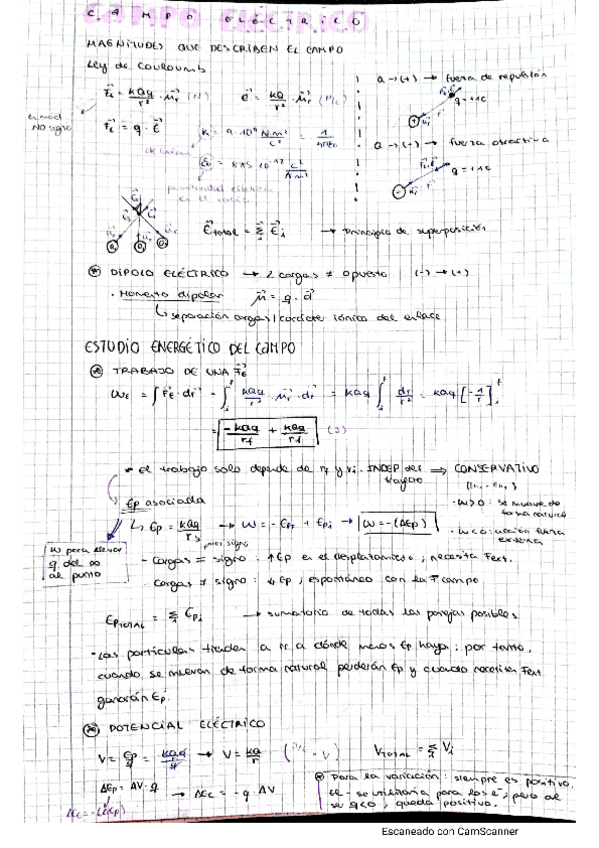 CAMPO ELÉCTRICO
MAGNITUDES QUE DESCRIBEN EL CAMPO
Ley de Couloumb
F⃗ = kQq/r² · μ⃗r (N)   e⃗ = kQ/r² · μ⃗r (N/C)
Q → (+) → fuerza de repulsión
NO signo
F⃗ = q · E⃗
K = 9·10⁹ N·m²/C² = 1/4πε₀
ε₀ = 8'85·10⁻¹² C²/N·m²
Q → (-) → fuerza atractiva
q = +1C
q = +1C
E⃗TOTAL = Σ E⃗i → Principio de superposición
* DIPOLO ELÉCTRICO → 2 cargas ≠ opuesto (-) → (+)
· Momento dipolar μ⃗ = q · d⃗
↳ separación cargas / carácter iónico del enlace
ESTUDIO ENERGÉTICO DEL CAMPO
* TRABAJO DE UNA F⃗E
WE = ∫ F⃗E · dr⃗ = ∫ kQq/r² · μ⃗r · dr⃗ = kQq ∫ dr/r² = kQq [-1/r]
= -kQq/rf + kQq/ri (J)
* el trabajo solo depende de rf y ri. INDEP del trayecto ⇒ CONSERVATIVO
Ep asociada
· W>0: se mueve de forma natural
· W<0: acción fuerza externa
↳ Ep = kQq/r → W = -Epf + Epi → W = -(ΔEp)
W para llevar q del ∞ al punto
poner signo
- Cargas = signo: ↑Ep en el desplazamiento; necesita Fext.
Cargas ≠ signo: ↓Ep; espontáneo con la F campo
EpTOTAL = Σ Epi → sumatorio de todas las parejas posibles.
- Las partículas tienden a ir a dónde menos Ep haya: por tanto,
cuando se muevan de forma natural perderán Ep y cuando necesiten Fext
ganarán Ep.
* POTENCIAL ELÉCTRICO
V = Ep/q = kQq/r/q → V = kQ/r (J/C = V)   VTOTAL = Σ Vi
ΔEp = ΔV · q → ΔEc = -q · ΔV
ΔEc = -(ΔEp)
* Para la variación: siempre es positivo.
el - se utilizaría para los e⁻, pero al
ser q<0, queda positivo.
Escaneado con CamScanner